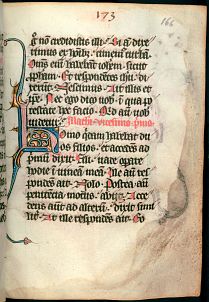 173
166
non credidistis illi. Si autem dixe
rimus ex hominibus, timemus turbam.
Omnes enim habebant iohannem sicut
prophetam. Et respondentes ihesu di
xerunt. Nescimus. Ait illis et
ipse. Nec ego dico vobis in qua po
testate hec facio. Quid autem vobis
videtur
Homo quidam habebat du
os filios. et accedens ad
primum dixit. Fili. vade operare
hodie in vinea mea. Ille autem res
pondens ait. Nolo. Postea autem
penitentia motus. abiit. Acce
dens autem ad alterum. dixit simi
liter. At ille respondens ait. Eo